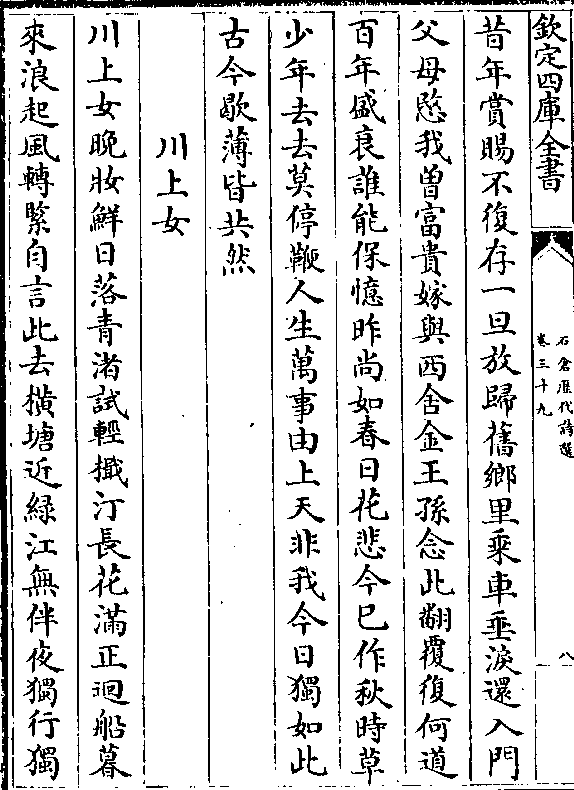 欽定四庫全書
石倉歷代詩選
卷三十九
八
昔年賞賜不復存一旦放歸舊鄉里乘車垂淚還入門
父母愍我曾富貴嫁與西舍金王孫念此翻覆復何道
百年盛衰誰能保憶昨尚如春日花悲今已作秋時草
少年去去莫停鞭人生萬事由上天非我今日獨如此
古今歇薄皆共然
川上女
川上女晚妝鮮日落青渚試輕檝汀長花滿正迴船暮
來浪起風轉緊自言此去橫塘近綠江無伴夜獨行獨